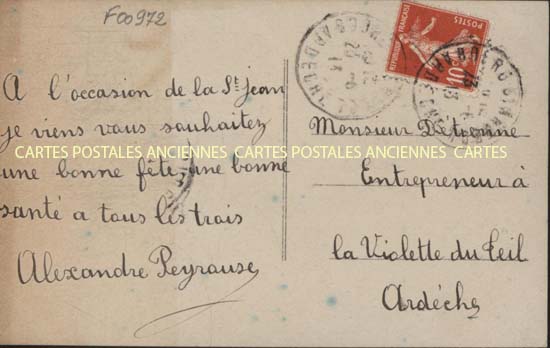 F00972
A l'occasion de la St Jean
je viens vous souhaitez
une bonne fête, une bonne
santé a tous les trois
Alexandre Peyrouse
REPUBLIQUE FRANÇAISE
POSTES
10c
Monsieur
Entrepreneur à
la Violette du Teil
Ardèche
CARTES POSTALES ANCIENNES CARTES POSTALES ANCIENNES CARTES